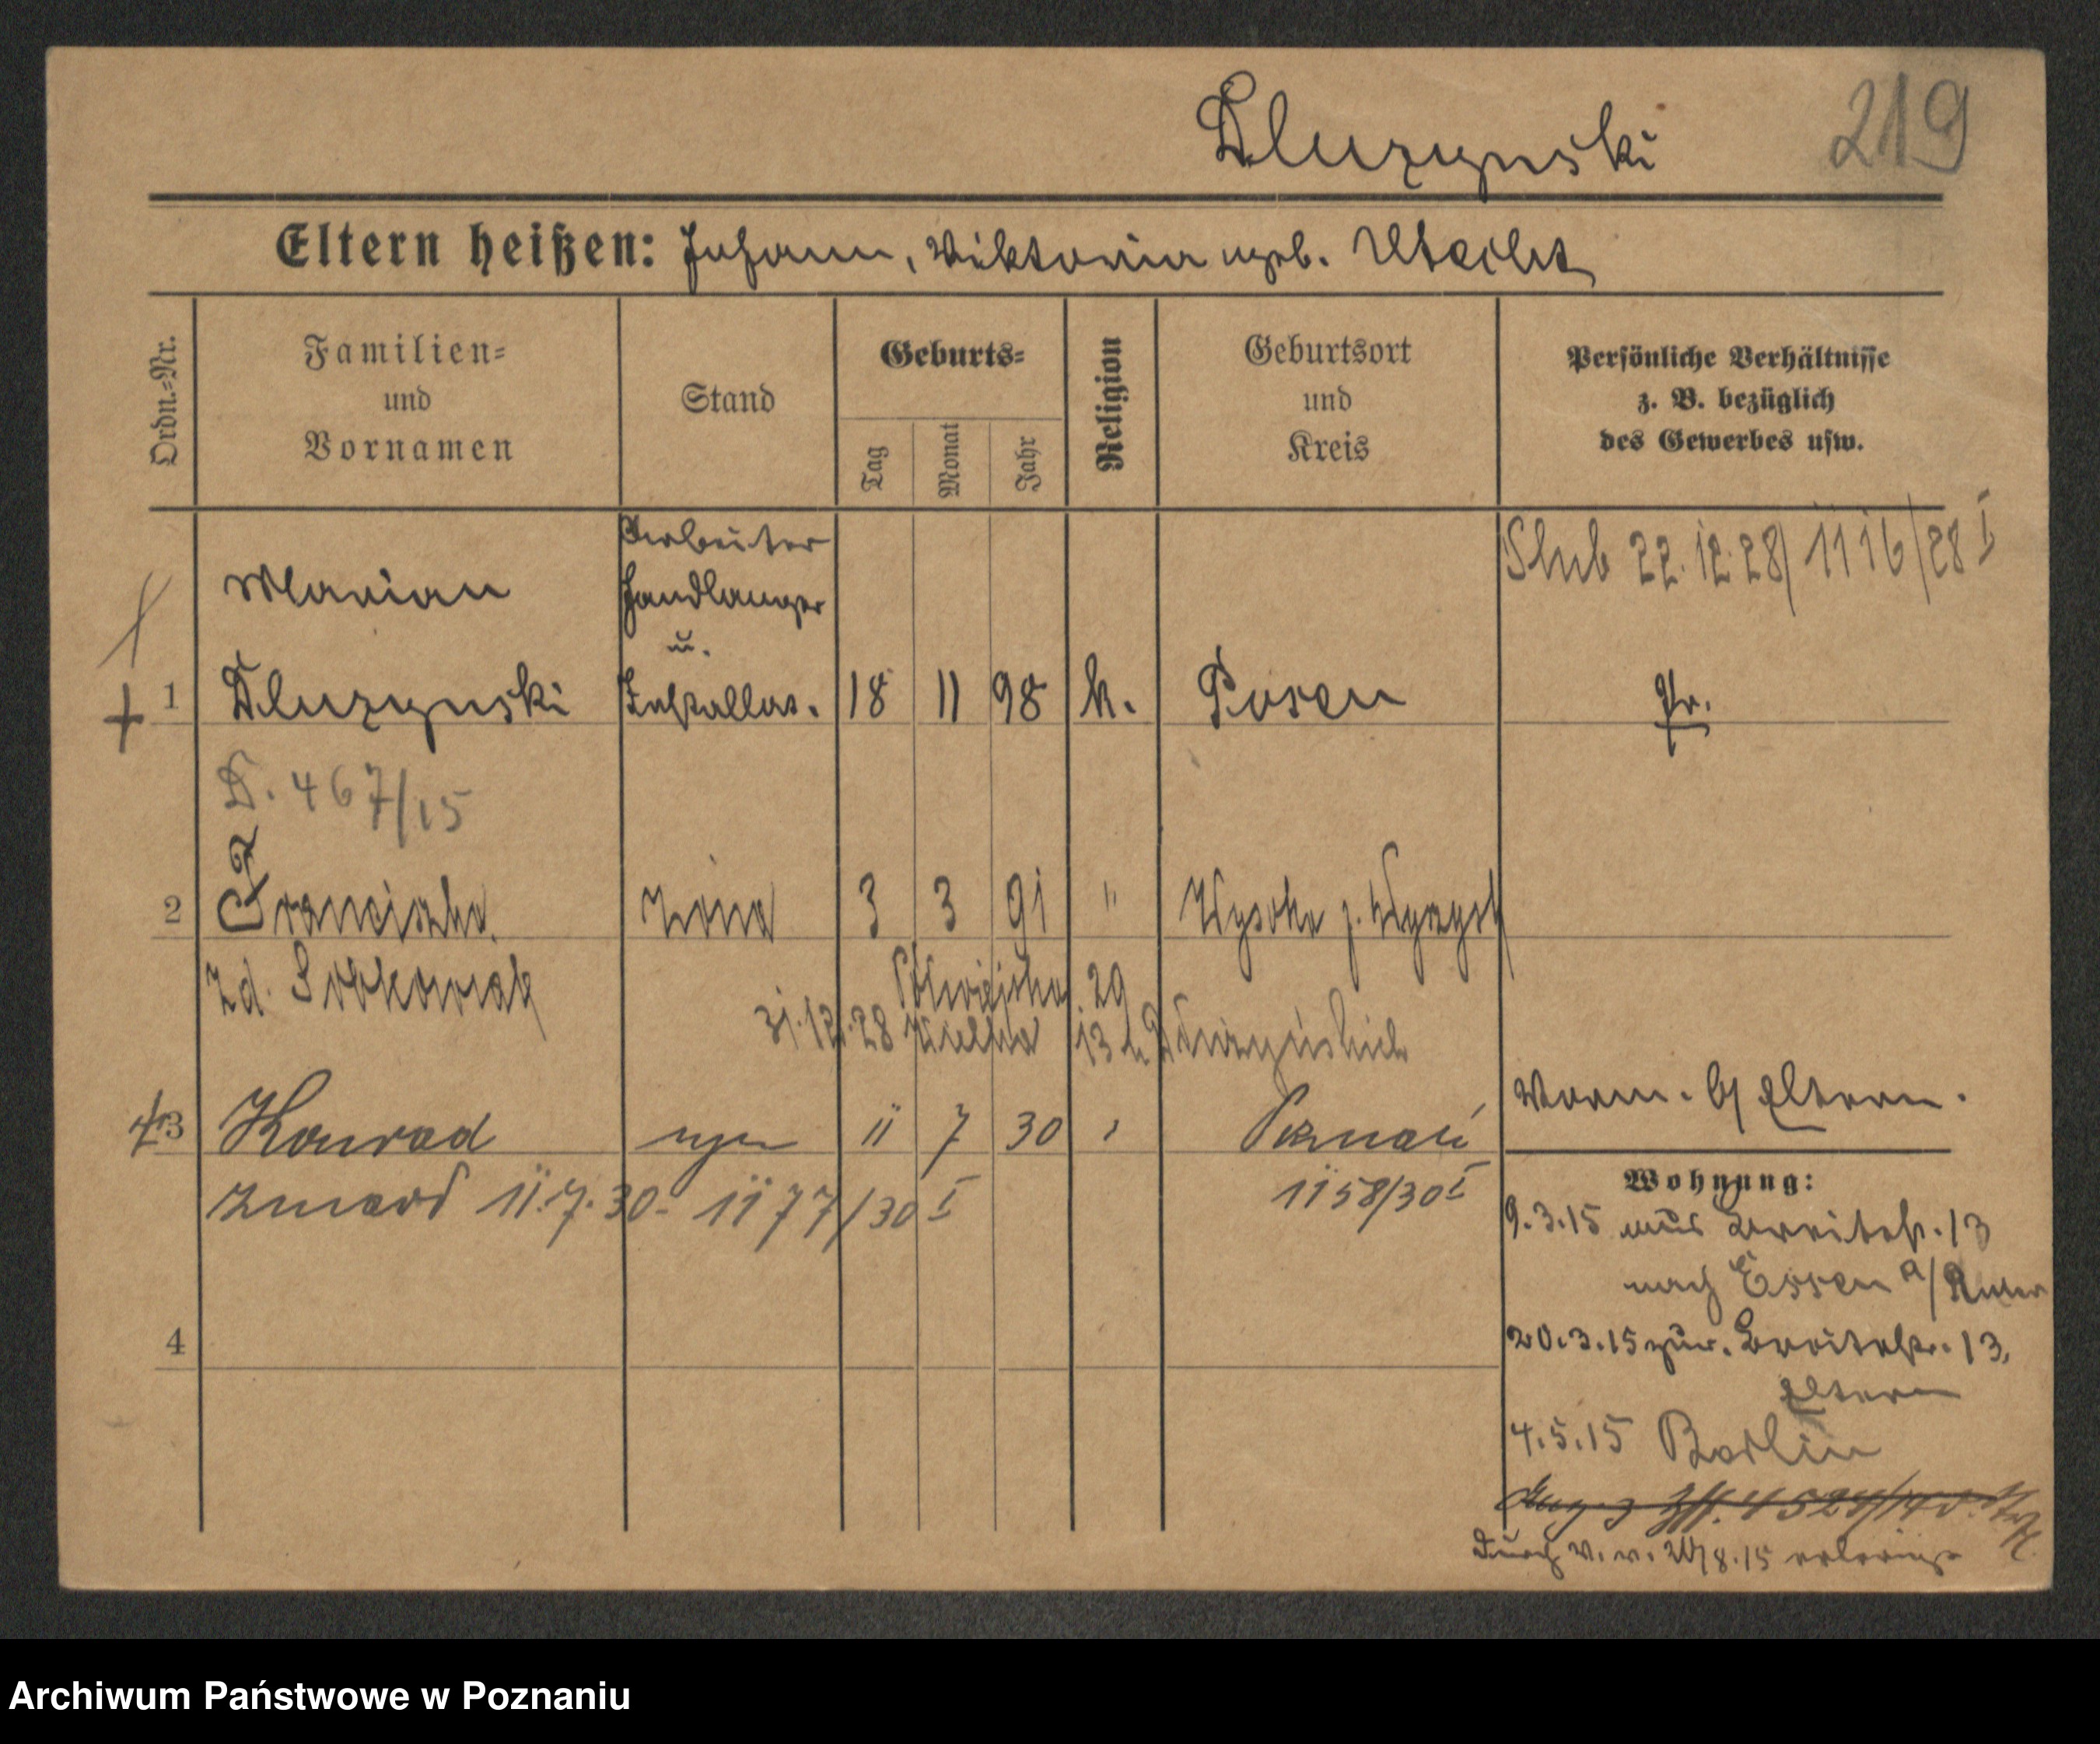 Dluzynski 219
Eltern heißen: Johann, Viktoria geb. Utecht
Ordn.-Nr. Familien- und Vornamen Stand Geburts- Tag Monat Jahr Religion Geburtsort und Kreis Persönliche Verhältnisse z. B. bezüglich des Gewerbes usw.
Arbeiter Slub 22.12.28/1116/28 I
Marian Handlanger
u.
1 Dluzynski Installat. 18 11 98 k. Posen Pr.
D. 467/15
2 Franciszka żona 3 3 91 " Wysoka p. Wyrzysk
zd. Sobkowiak Półwiejska 29
31.12.28 Wielka 13 Dłużyński
Vorm. Eltern.
3 Konrad syn 11 7 30 " Poznań
zmarł 11.7.30 - 1177/30 I 1158/30 I
Wohnung:
9.3.15 aus Breitestr. 13
nach Essen a/Ruhr
4 20.3.15 zur. Breitestr. 13,
Eltern
4.5.15 Berlin
Durch V. v. 8.15
Archiwum Państwowe w Poznaniu